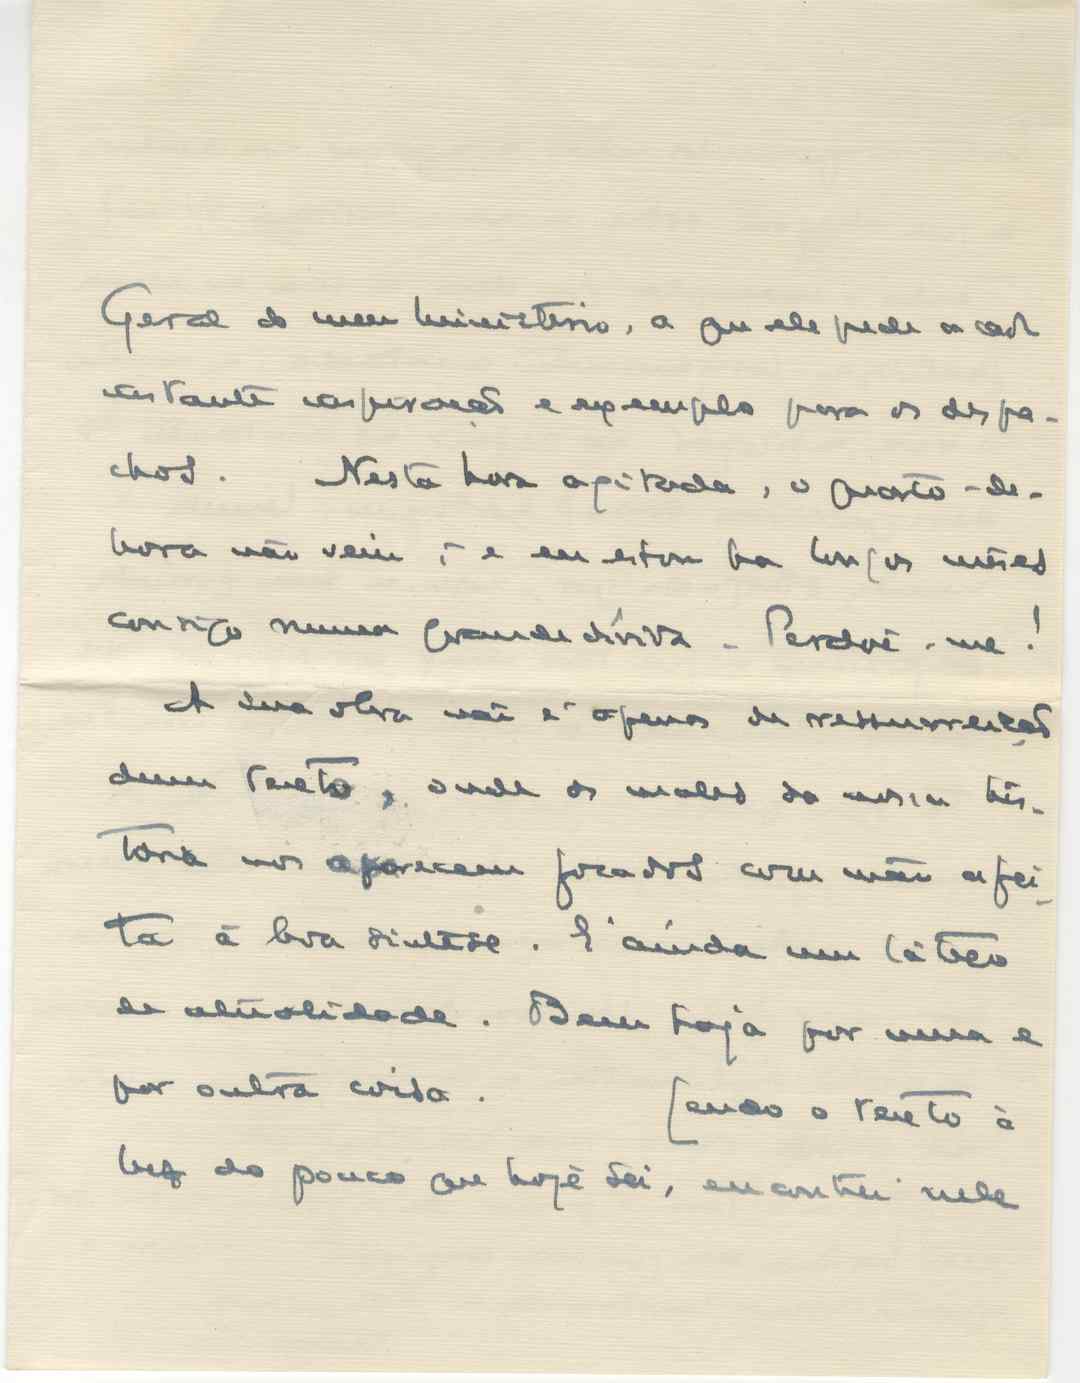 Geral do meu Ministério, a que ele pede a cada
instante inspiração e exemplo para os despa-
chos. Nesta hora agitada, o quarto-de-
hora não vem; e eu estou há longos mêses
consigo numa grande dívida. Perdoe-me!
A sua obra não é apenas de ressurreição
dum texto, onde os males da nossa his-
tória nos aparecem focados com mão afei-
ta à boa síntese. E' ainda um látego
de atualidade. Bem haja por uma e
por outra coisa. Lendo o texto à
luz do pouco que hoje sei, encontrei nele